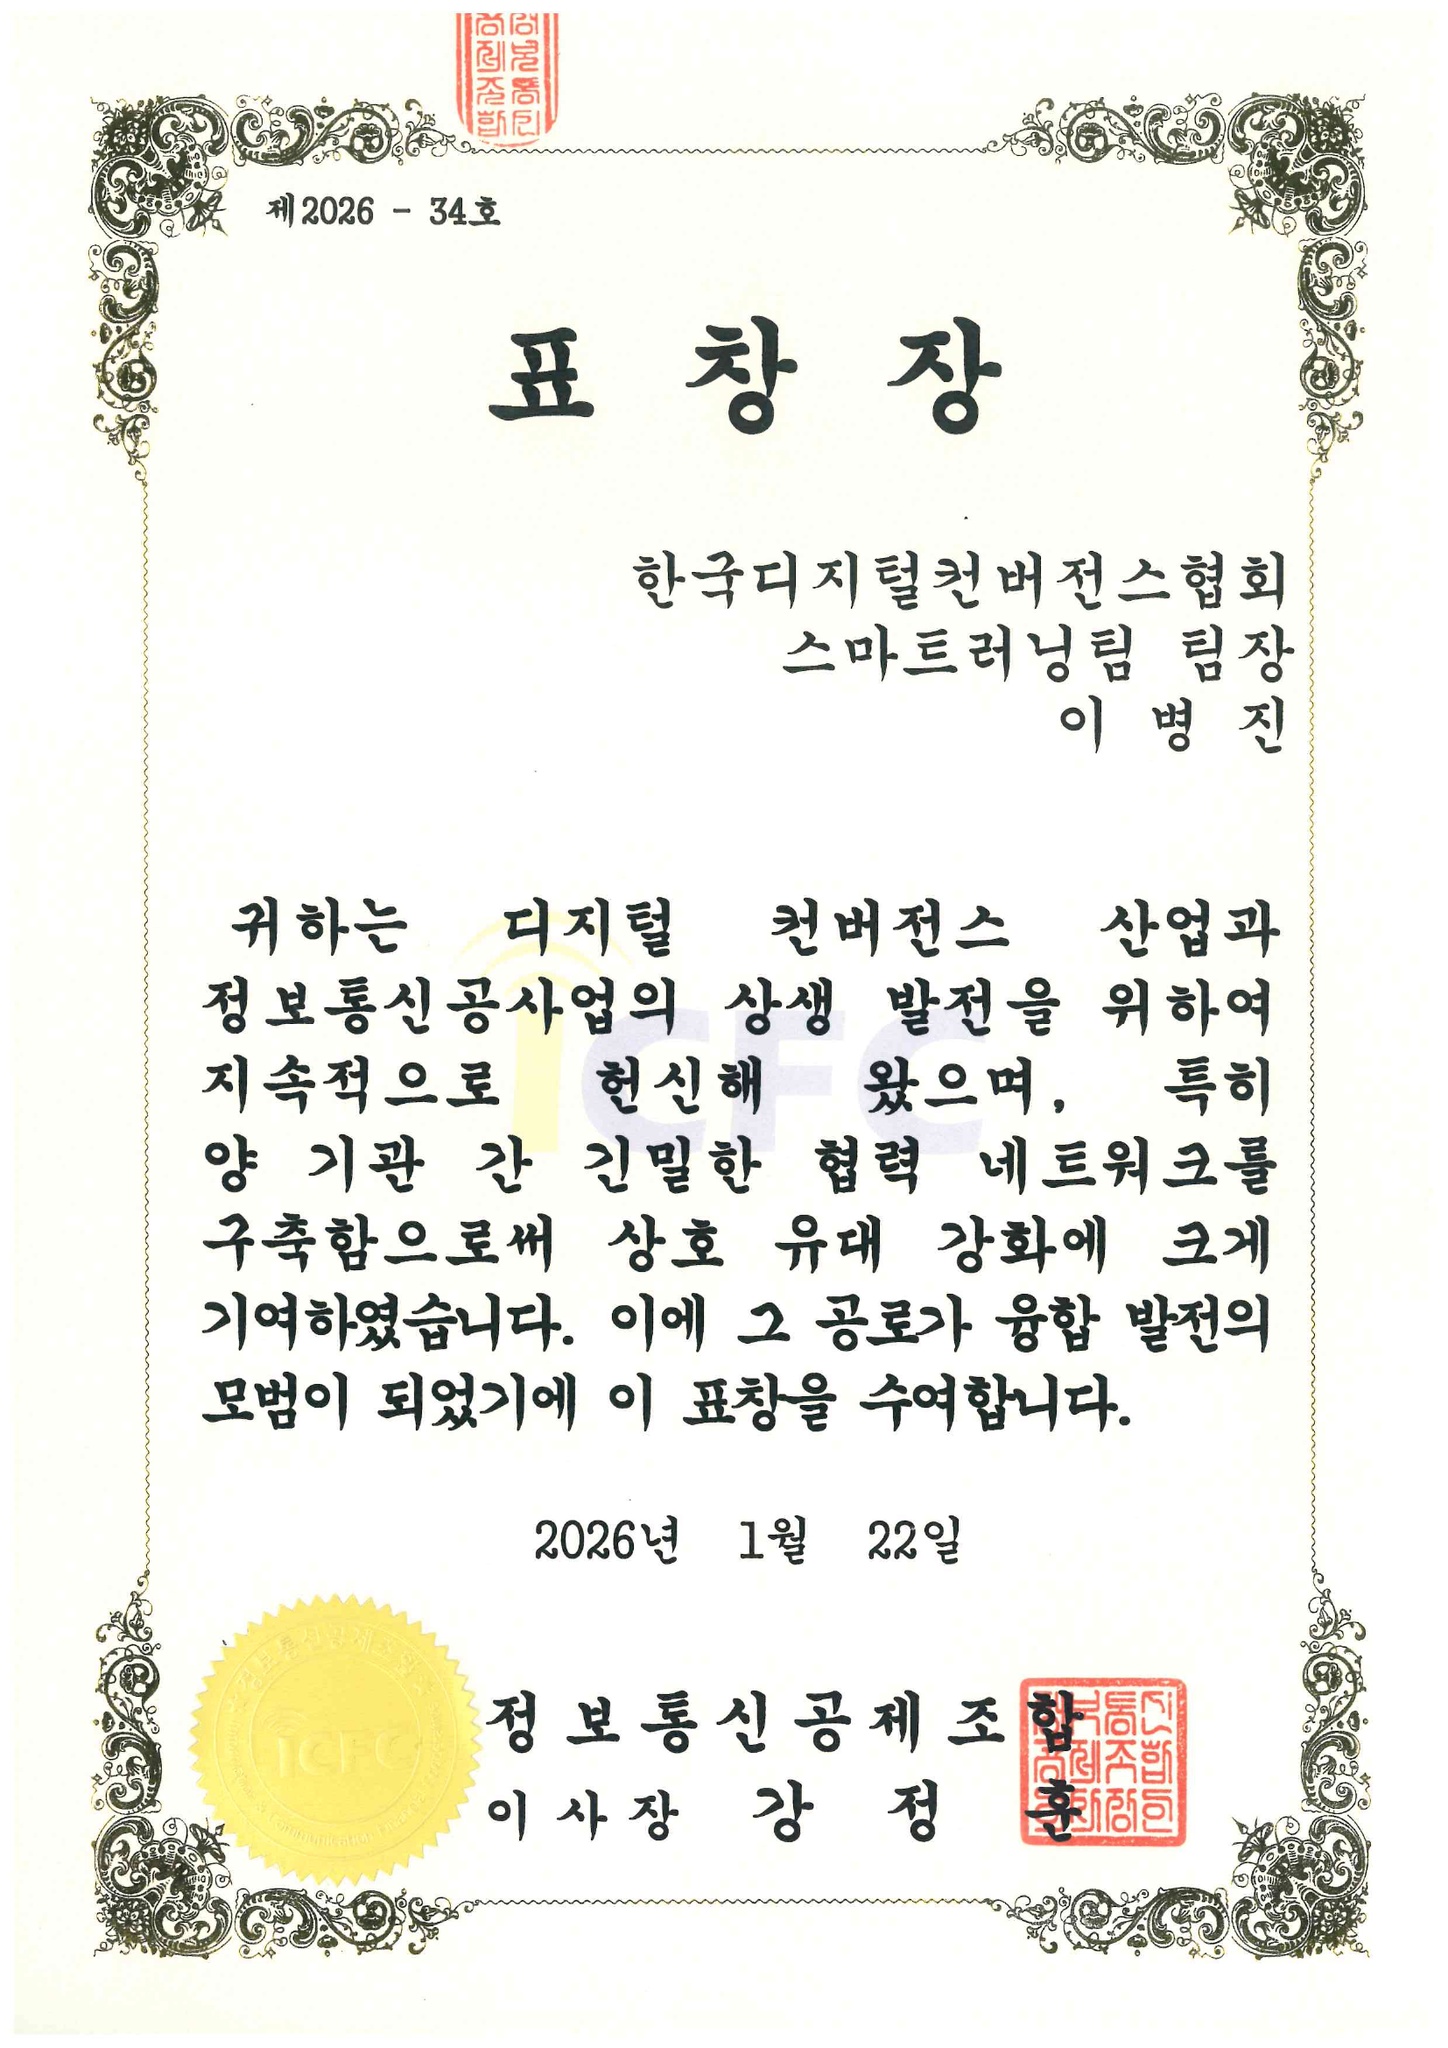 제2026 - 34호
표 창 장
한국디지털컨버전스협회
스마트러닝팀 팀장
이 병 진
귀하는 디지털 컨버전스 산업과
정보통신공사업의 상생 발전을 위하여
지속적으로 헌신해 왔으며, 특히
양 기관 간 긴밀한 협력 네트워크를
구축함으로써 상호 유대 강화에 크게
기여하였습니다. 이에 그 공로가 융합 발전의
모범이 되었기에 이 표창을 수여합니다.
iCFC
2026년 1월 22일
정보통신공제조합
이사장 강 정 훈
iCFC